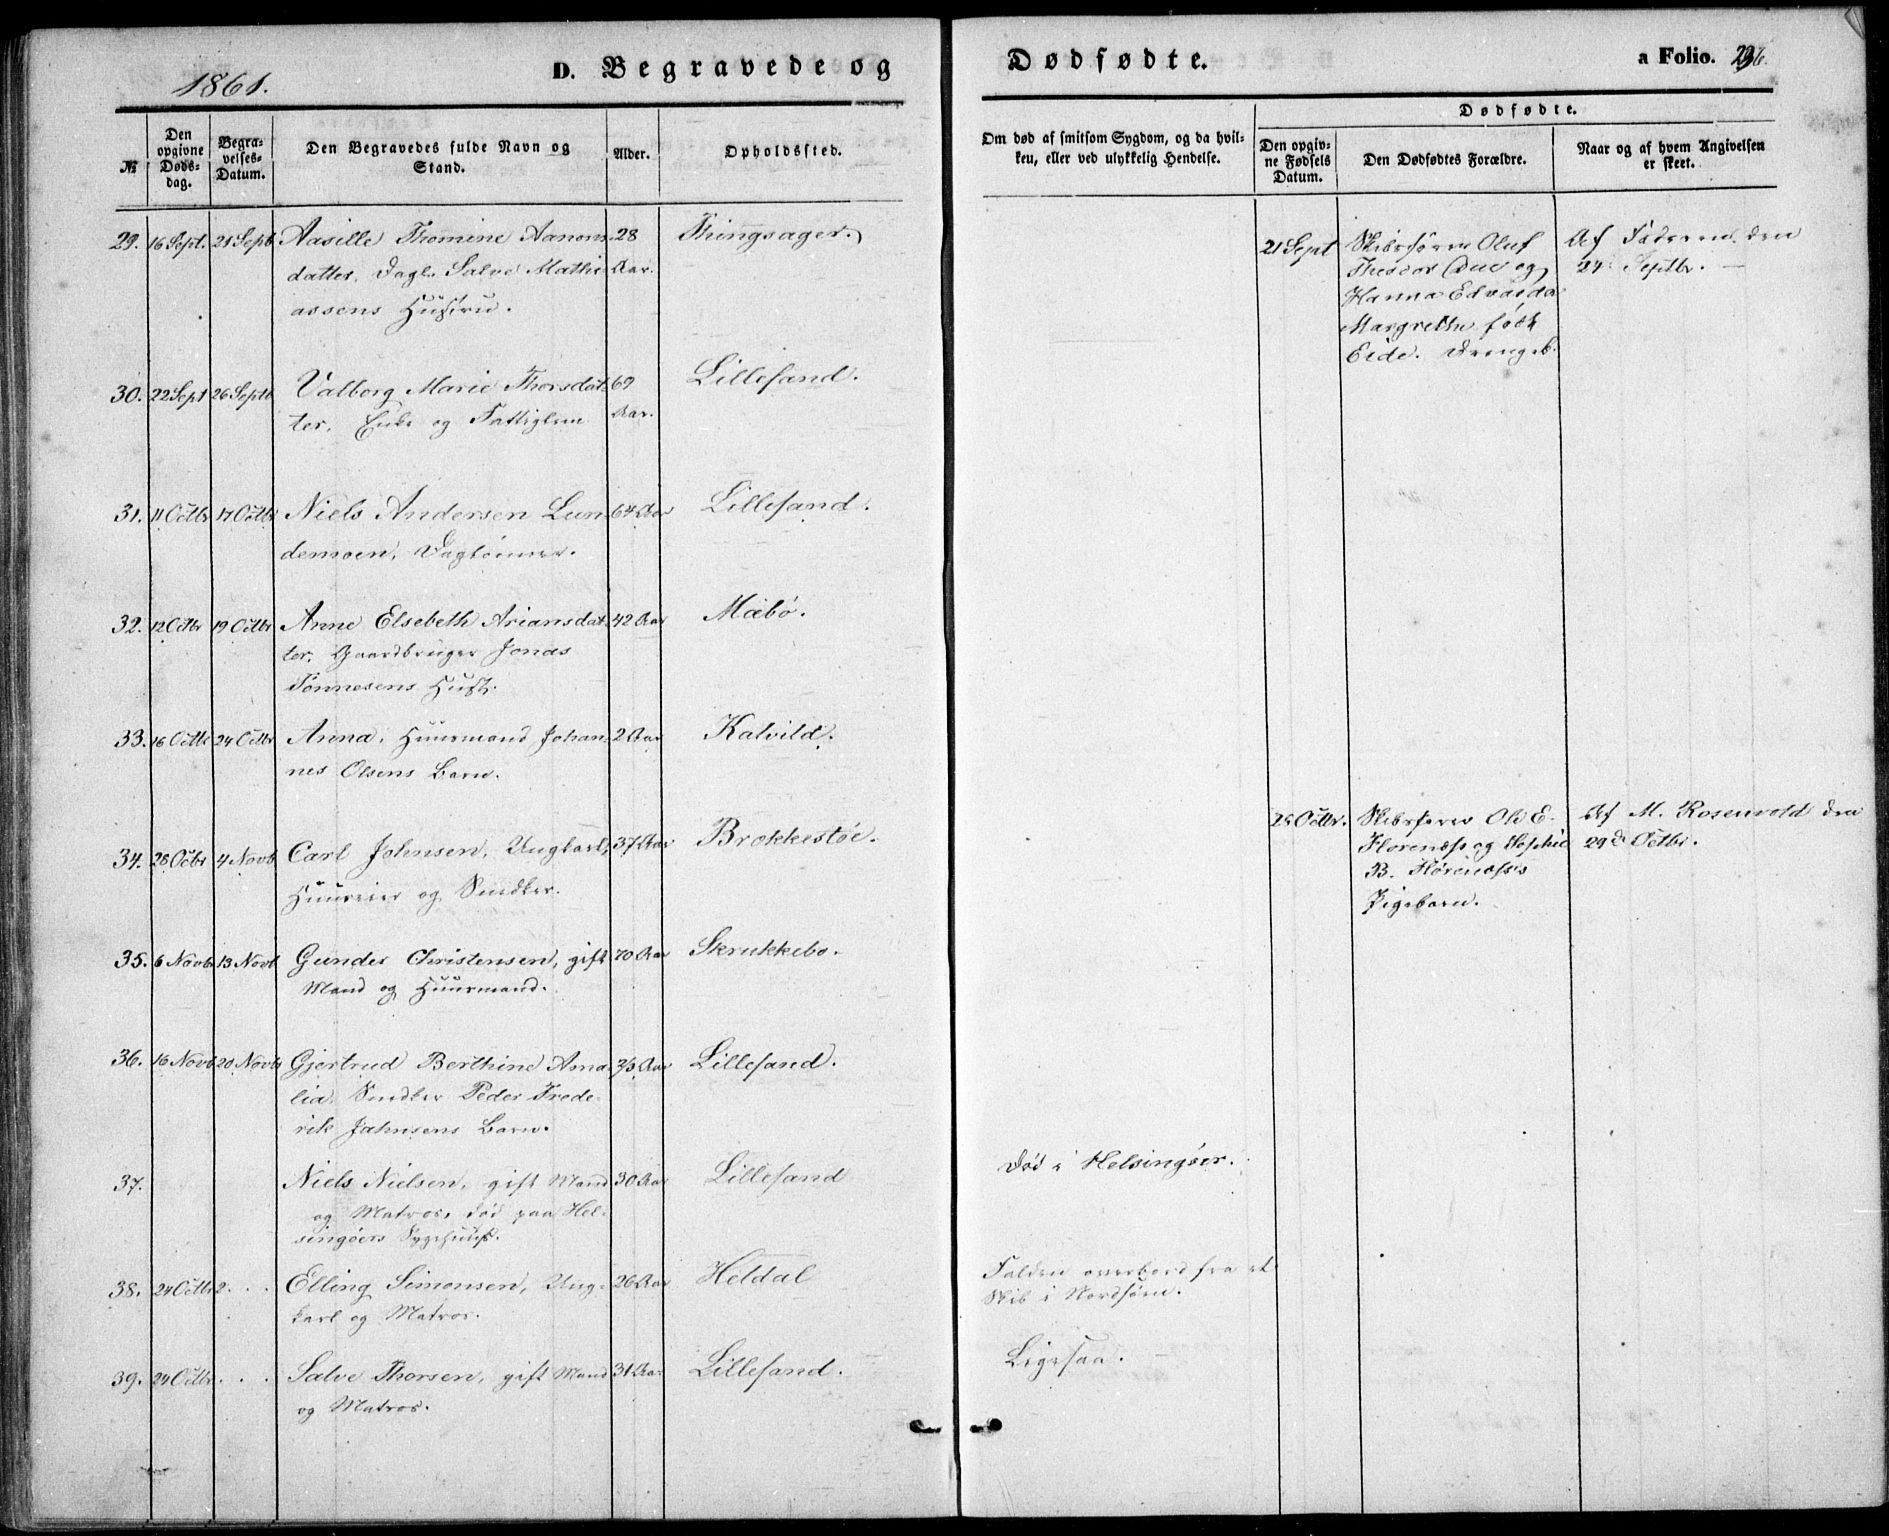 1861.
D. Begravede og
Dødfødte.
a Folio. 236.
№
Den opgivne Døds-dag.
Begra-velses-Datum.
Den Begravedes fulde Navn og Stand.
Alder.
Opholdssted.
Om død af smitsom Sygdom, og da hvil-
ken, eller ved ulykkelig Hendelse.
Dødfødte.
Den opgiv-
ne Fødsels
Datum.
Den Dødfødtes Forældre.
Naar og af hvem Angivelsen
er skeet.
29. 16 Sept. 21 Septb Aasille Thomine Aanons- 28 Thingsager.
datter, Dagl. Salve Mathi- Aar.
assens Hustru.
21 Sept Skibsfører Oluf Af Faderen den
Theodor Due og 24 Septbr.
Hanna Edvarda
Margrethe født
Eide. Drengeb.
30. 22 Sept 26 Septb Valborg Marie Thorsdat- 69 Lillesand.
ter, Enke og Fattiglem Aar.
31. 11 Octbr 17 Octbr Niels Andersen Lun- 64 Aar Lillesand.
demoen, Daglønner.
32. 12 Octbr 19 Octbr Anne Elsebeth Ariansdat- 42 Aar Mæbø.
ter, Gaardbruger Jonas
Tønnesens Hustr.
33. 16 Octbr 24 Octbr Anna, Huusmand Johan- 2 Aar Kalvild.
nes Olsens Barn.
34. 28 Octbr 4 Novb Carl Johnsen, Ungkarl, 37 Aar Brøkkestøe.
Huuseier og Snedker.
25 Octbr. Skibsfører Ole E. Af M. Rosenvold den
Florenæss og Sophie 29de Octbr.
B. Florenæss's
Pigebarn.
35. 6 Novb 13 Novb Gunder Christensen, gift 70 Aar Skrukkebo.
Mand og Huusmand.
36. 16 Novb 20 Novb Gjertrud Berthine Ama- Aar Lillesand.
lia, Snedker Peder Frede-
rik Jahnsens Barn.
37. Niels Nielsen, gift Mand 30 Aar Lillesand Død i Helsingöer.
og Matros, død paa Hel-
singøers Sygehuus.
38. 24 Octbr 2. . . Elling Simonsen, Ung- 26 Aar Heldal Falden overbord fra et
karl og Matros. Skib i Nordsøen.
39. 24 Octbr . . . Salve Thorsen, gift Mand 31 Aar Lillesand. Ligesaa.
og Matros.